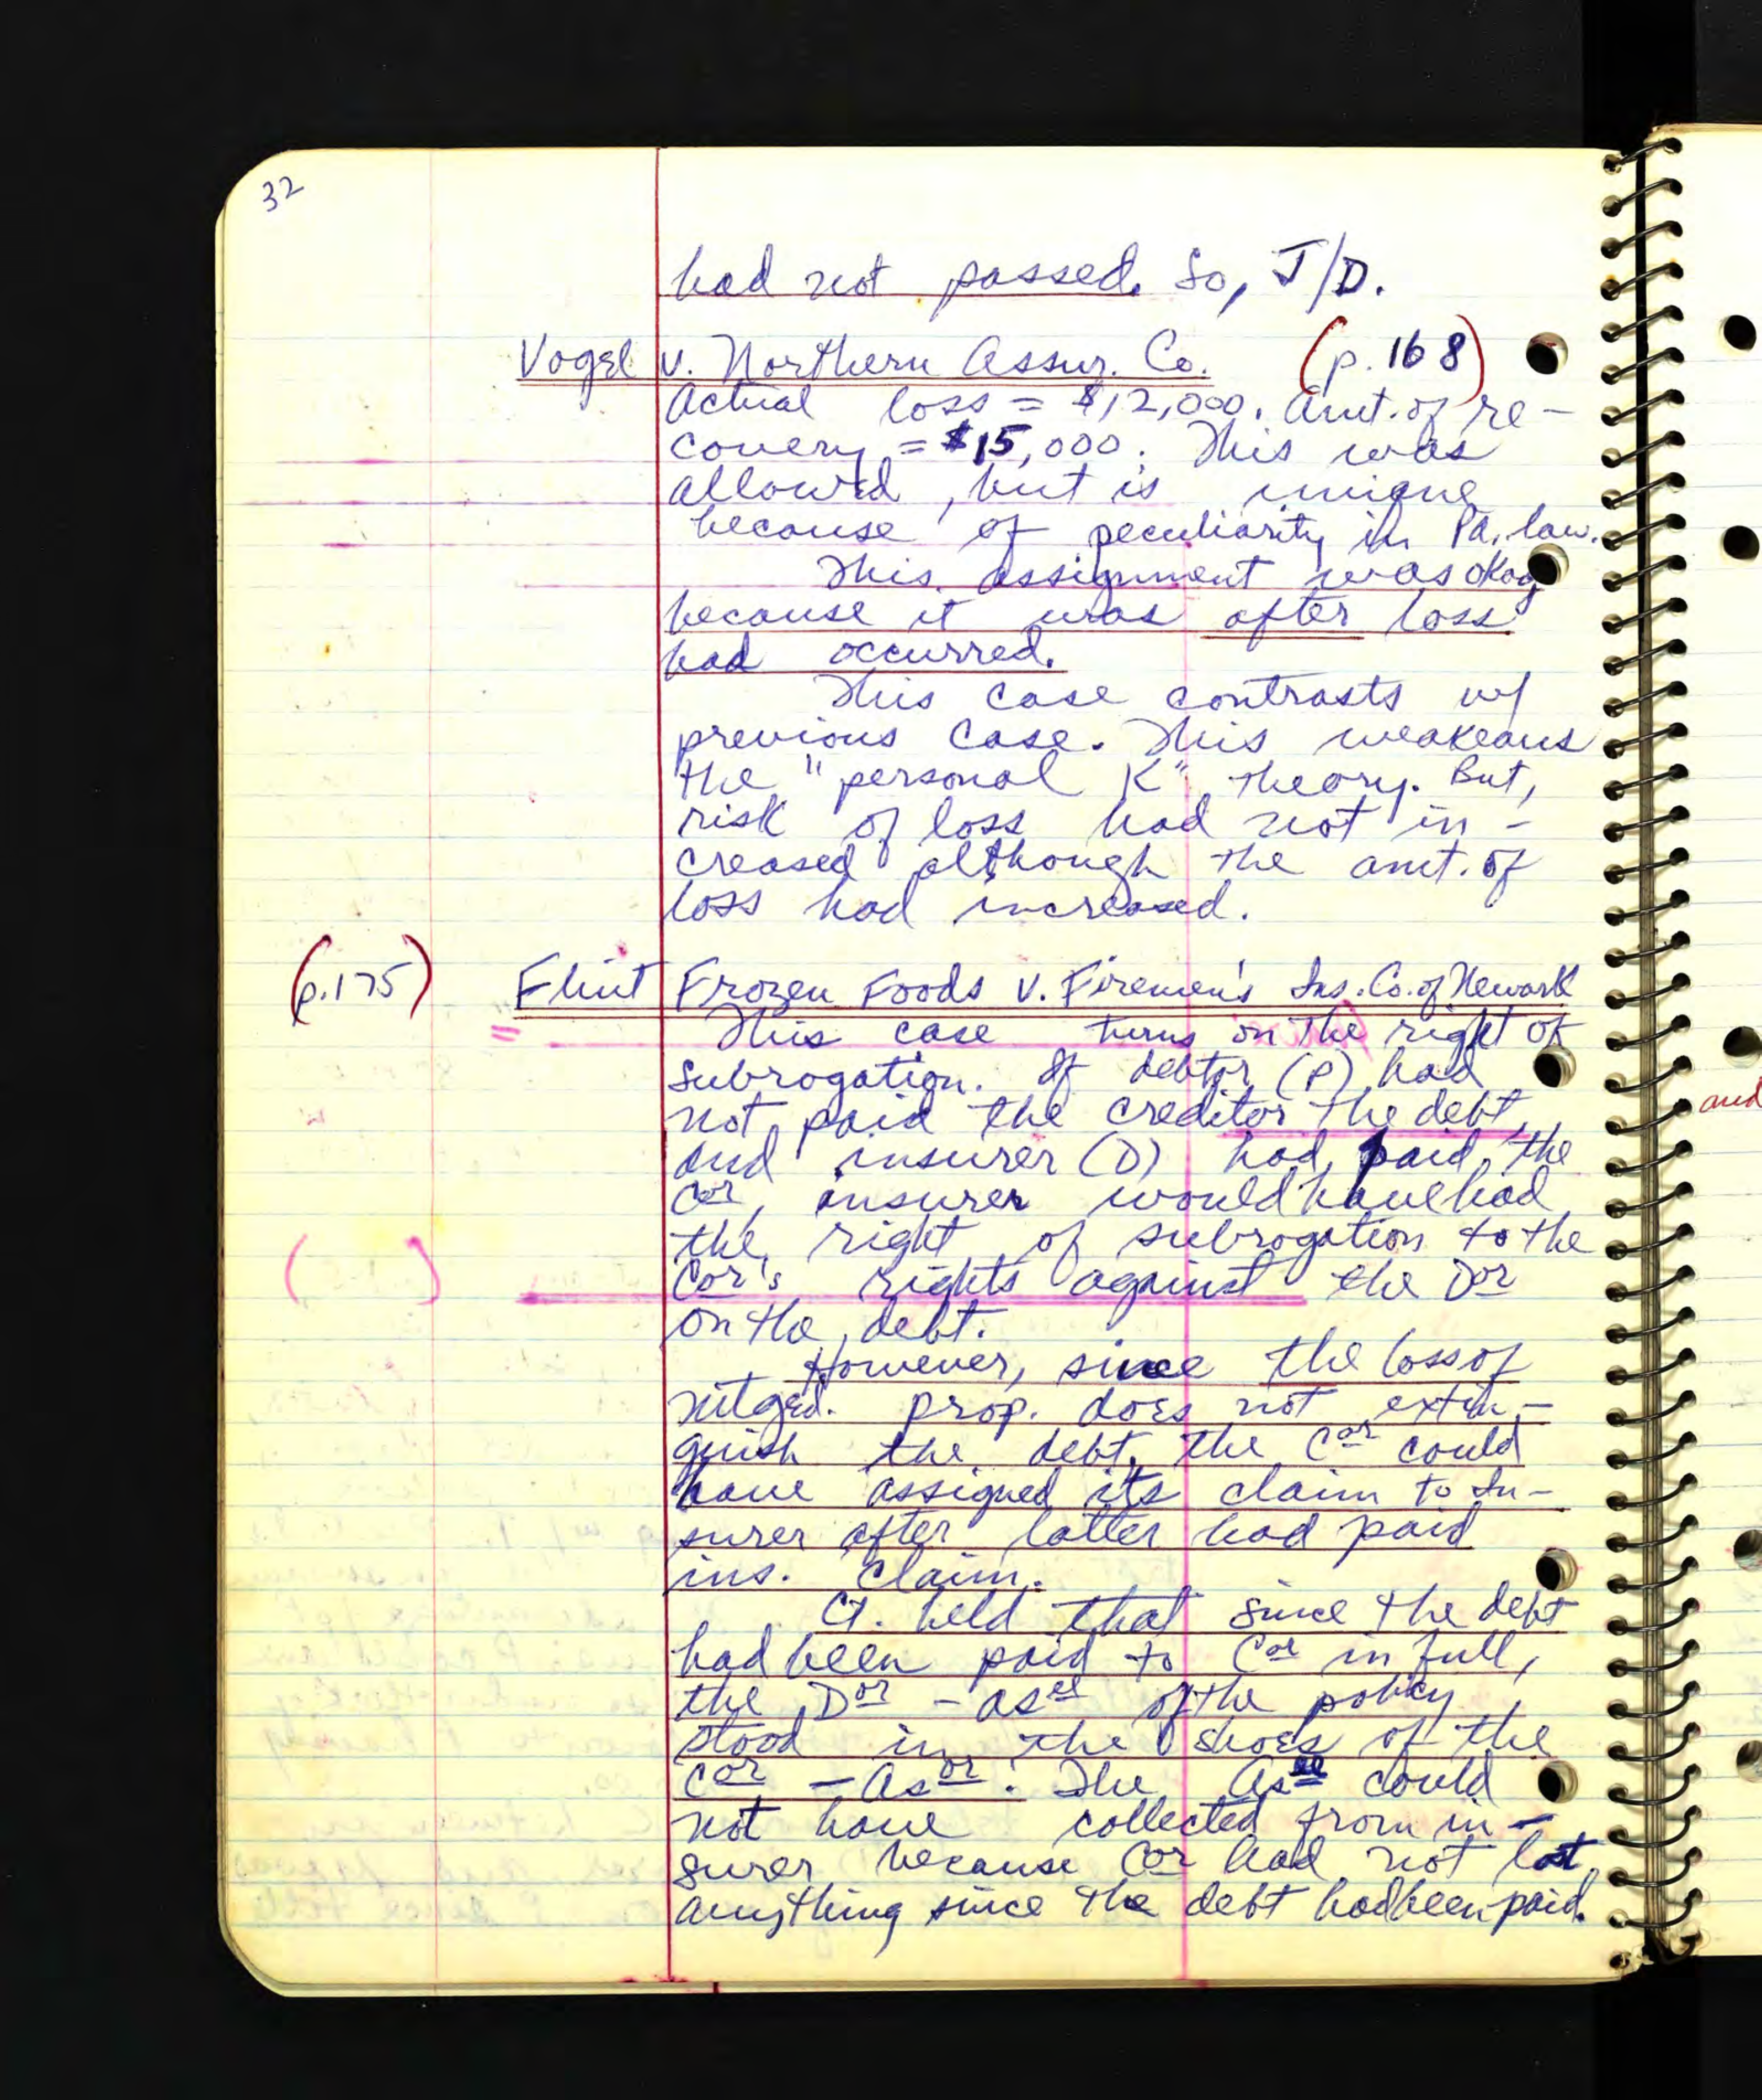 32
had not passed. So, J/D.
Vogel v. Northern Assur. Co. (p.168)
Actual loss = $12,000. Amt. of re-
covery = $15,000. This was
allowed, but is unique
because of peculiarity in Pa. law.
This assignment was okay
because it was after loss
had occurred.
This case contrasts w/
previous case. This weakeans
the "personal K" theory. But,
risk of loss had not in-
creased although the amt. of
loss had increased.
(p.175) Flint Frozen Foods v. Firemen's Ins. Co. of Newark
This case turns on the right of
subrogation. If debtor (P) had
not paid the creditor the debt,
and insurer (D) had paid the
Cor, insurer would have had
the right of subrogation to the
Cor's rights against the Dor
on the debt.
However, since the loss of
mtged. prop. does not extin-
guish the debt, the Cor could
have assigned its claim to In-
surer after latter had paid
ins. claim.
Ct. held that since the debt
had been paid to Cor in full,
the Dor - asee of the policy
stood in the shoes of the
Cor - Asor. The Asee could
not have collected from in-
surer because Cor had not lost
anything since the debt had been paid.
and